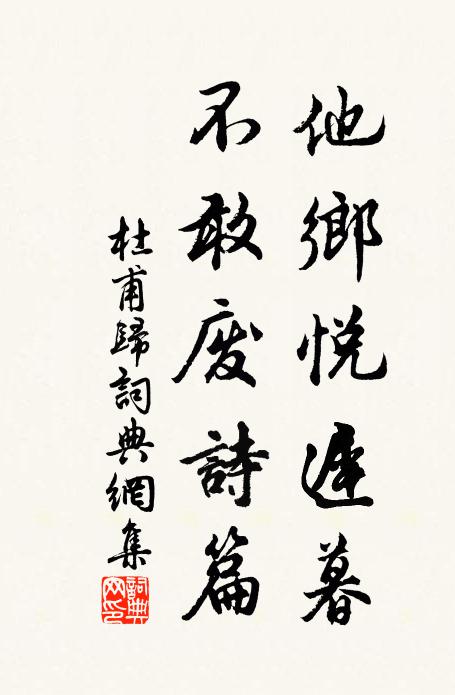 他鄉悅遲暮
不敢废詩篇
杜甫歸詞典網集
詞典网印